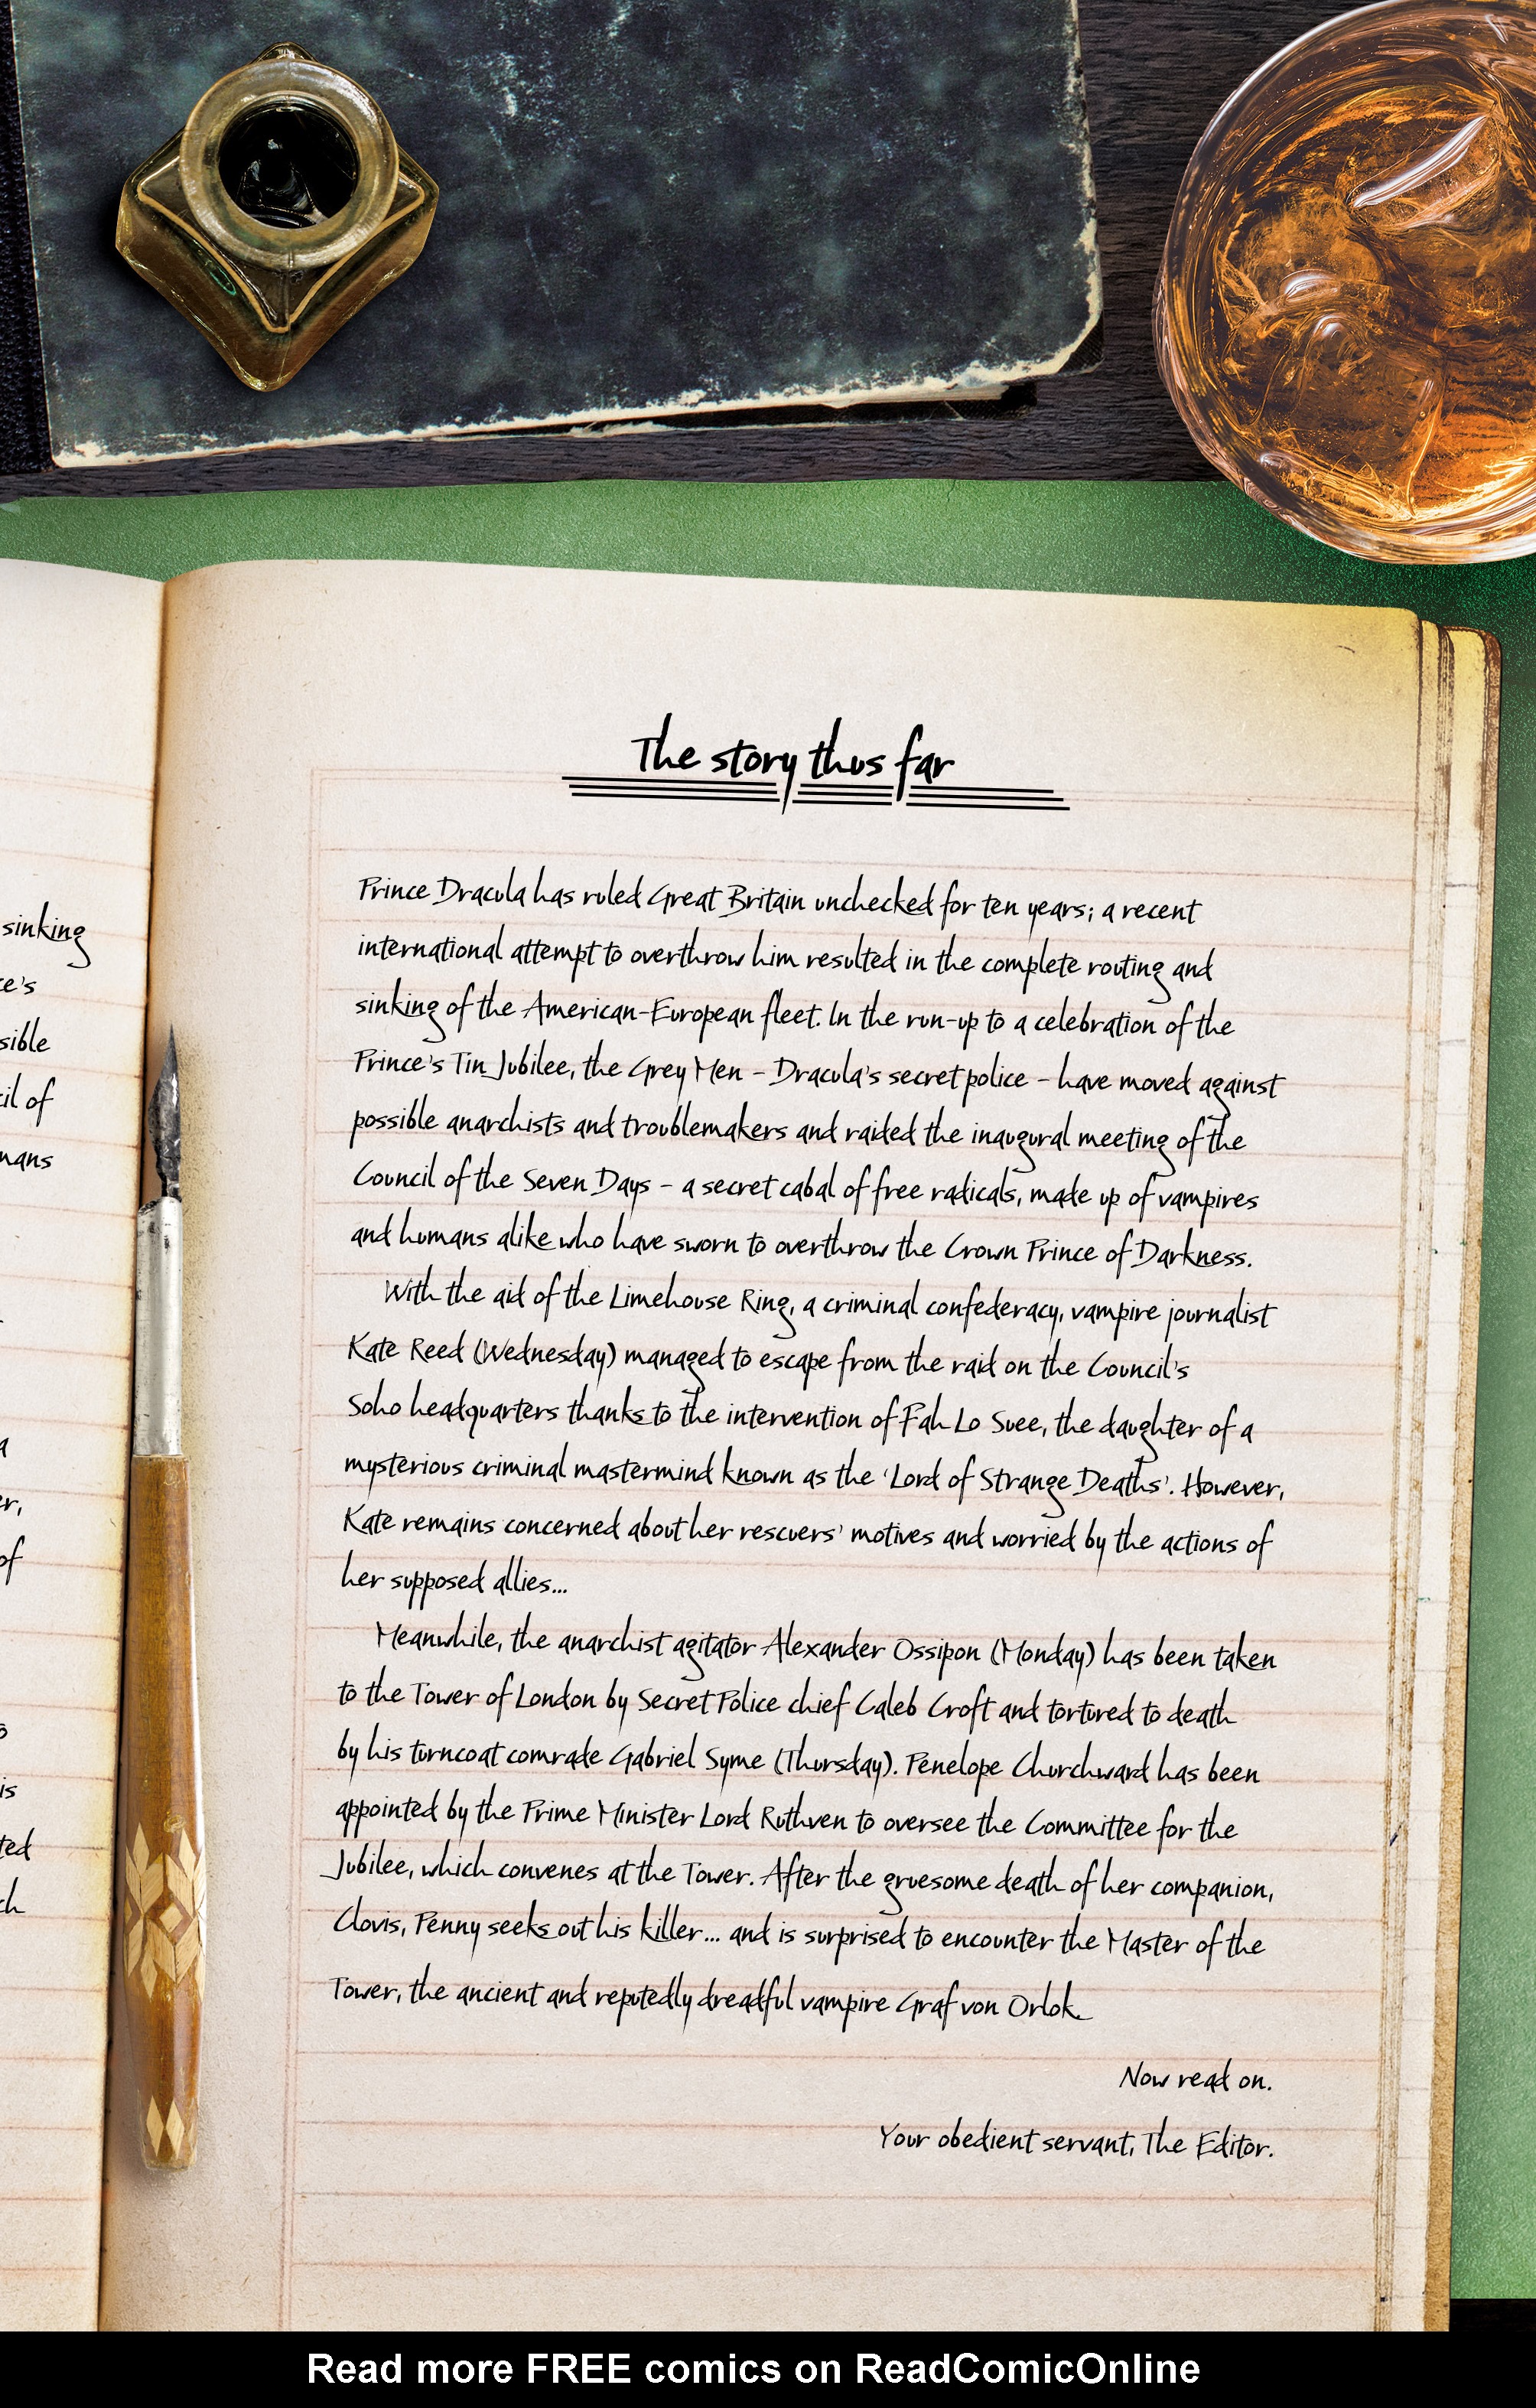 The story thus far
Prince Dracula has ruled Great Britain unchecked for ten years; a recent
international attempt to overthrow him resulted in the complete routing and
sinking of the American-European fleet. In the run-up to a celebration of the
Prince's Tin Jubilee, the Grey Men - Dracula's secret police - have moved against
possible anarchists and troublemakers and raided the inaugural meeting of the
Council of the Seven Days - a secret cabal of free radicals, made up of vampires
and humans alike who have sworn to overthrow the Crown Prince of Darkness.
With the aid of the Limehouse Ring, a criminal confederacy, vampire journalist
Kate Reed (Wednesday) managed to escape from the raid on the Council's
Soho headquarters thanks to the intervention of Fah Lo Suee, the daughter of a
mysterious criminal mastermind known as the 'Lord of Strange Deaths'. However,
Kate remains concerned about her rescuers' motives and worried by the actions of
her supposed allies...
Meanwhile, the anarchist agitator Alexander Ossipon (Monday) has been taken
to the Tower of London by Secret Police chief Caleb Croft and tortured to death
by his turncoat comrade Gabriel Syme (Thursday). Penelope Churchward has been
appointed by the Prime Minister Lord Ruthven to oversee the Committee for the
Jubilee, which convenes at the Tower. After the gruesome death of her companion,
Clovis, Penny seeks out his killer... and is surprised to encounter the Master of the
Tower, the ancient and reputedly dreadful vampire Graf von Orlok.
Now read on.
Your obedient servant, The Editor.
sinking
of
Read more FREE comics on ReadComicOnline